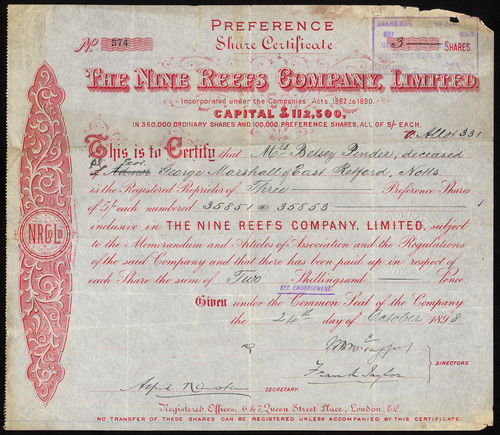 PREFERENCE
Share Certificate.
No 374
3 SHARES.
THE NINE REEFS COMPANY, LIMITED.
Incorporated under the Companies' Acts, 1862 to 1890.
CAPITAL £112,500,
IN 350,000 ORDINARY SHARES AND 100,000 PREFERENCE SHARES, ALL OF 5/- EACH.
Allot 331
This is to Certify that Mrs Betsey Pinder, deceased
George Marshall of East Retford, Notts
is the Registered Proprietor of Three Preference Shares
of 5/- each numbered 35851 @ 35853
inclusive in THE NINE REEFS COMPANY, LIMITED, subject
to the Memorandum and Articles of Association and the Regulations
of the said Company and that there has been paid up in respect of
each Share the sum of Two Shillings and Pence
SEE ENDORSEMENT
Given under the Common Seal of the Company
the 24th day of October 1898
NRC Ld
Frank Taylor
DIRECTORS.
SECRETARY.
Registered Offices, 6 & 7, Queen Street Place, London, E.C.
NO TRANSFER OF THESE SHARES CAN BE REGISTERED UNLESS ACCOMPANIED BY THIS CERTIFICATE.